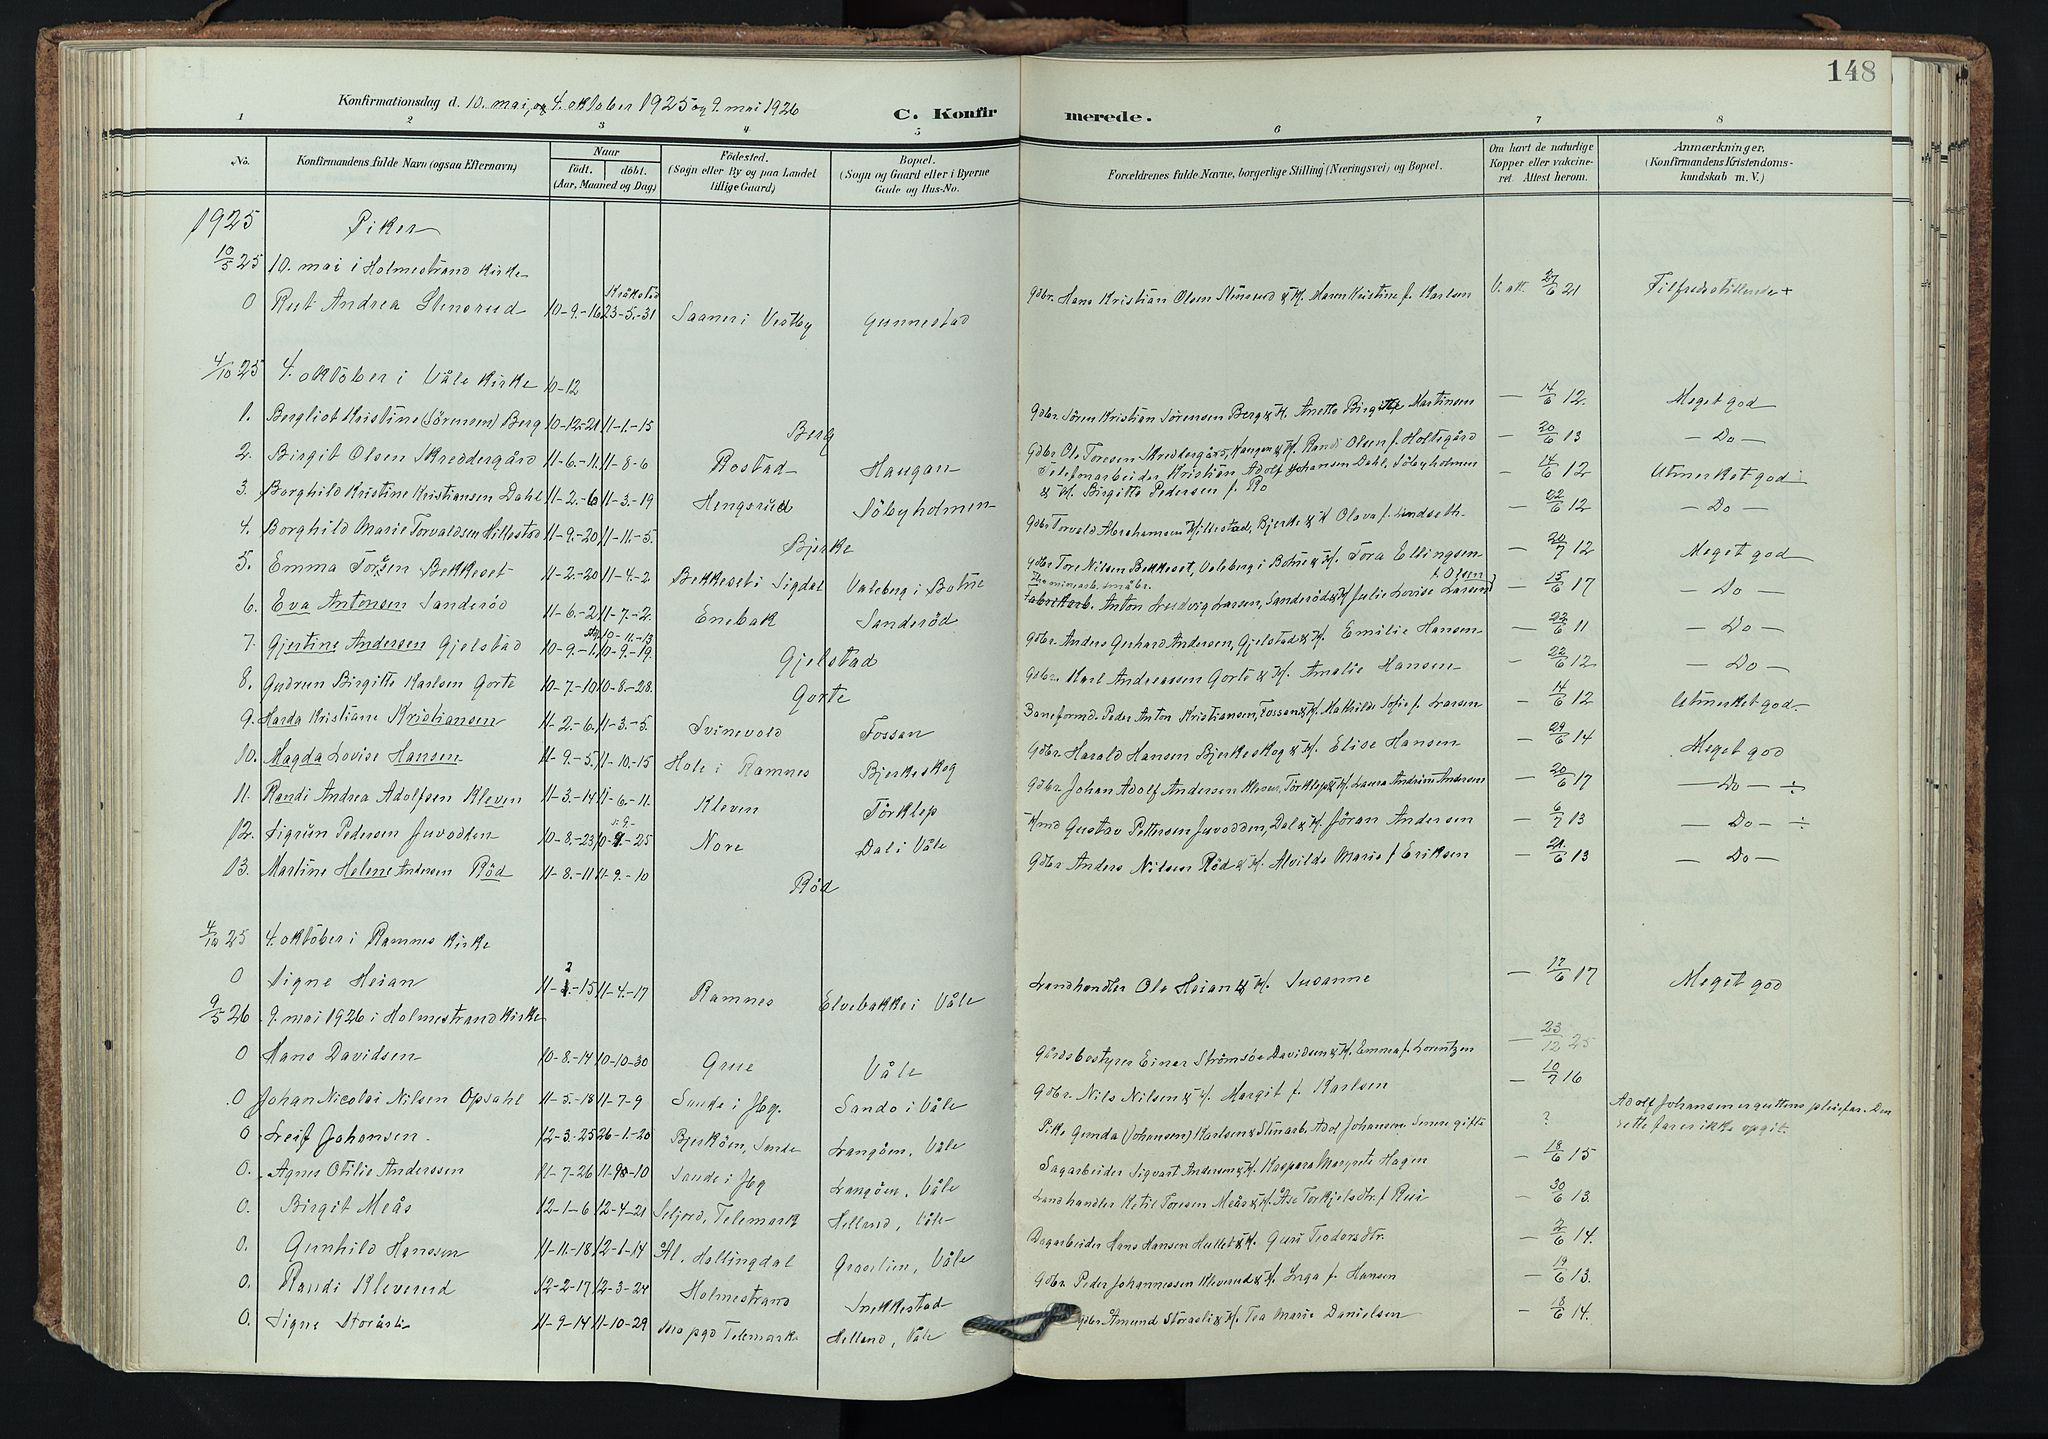 148
Konfirmationsdag d. 10. mai, og 4. oktober 1925 og 9. mai 1926
C. Konfirmerede.
1 2 3 4 5 6 7 8
No. Konfirmandens fulde Navn (ogsaa Efternavn) Naar født. døbt. (Aar, Maaned og Dag) Fødested. (Sogn eller By og paa Landet tillige Gaard) Bopæl. (Sogn og Gaard eller i Byerne Gade og Hus-No. Forældrenes fulde Navne, borgerlige Stilling (Næringsvei) og Bopæl. Om havt de naturlige Kopper eller vakcineret. Attest herom. Anmærkninger. (Konfirmandens Kristendomskundskab m. V.)
1925 Piker
10/5 25 10. mai i Holmestrand kirke
0 Rut Andrea Stensrud 10-9-16 Kråkstad 23-5-31 Saaner i Vestby Gunnestad Gdbr. Hans Kristian Olsen Stensrud & H. Maren Kristine f. Karlsen V. att. 27/6 21 Tilfredsstillende +
4/10 25 4. oktober i Våle kirke 10-12
1. Bergliot Kristine (Sörensen) Berg 10-12-21 11-1-15 Berg Gdbr. Sören Kristian Sörensen Berg & H. Anette Birgitte Martinsen — 14/6 12. Meget god
2. Birgit Olsen Skreddergård 11-6-11. 11-8-6 Rostad Haugan Gdbr Ole Toresen Skreddergård, Haugen & H. Randi Olsen f. Holtegård — 20/6 13 — Do —
3. Borghild Kristine Kristiansen Dahl 11-2-6 11-3-19 Hengsrud Söbyholmen Telefonarbeider Kristian Adolf Johansen Dahl, Söbyholmen & H. Birgitte Pedersen f. Ro — 14/6 12 Utmerket god
4. Borghild Marie Torvaldsen Hillestad 11-9-20 11-11-5. Bjerke Gdbr Torvald Abrahamsen Hillestad, Bjerke & H Olava f. Lindseth — 22/6 12 — Do —
5. Emma Toresen Bekkeset 11-2-20 11-4-2 Bekkeset i Sigdal Valeberg i Botne Gdbr Tore Nilsen Bekkeset, Valeberg i Botne & H. Tora Ellingsen — 20/7 12 Meget god
6. Eva Antonsen Sanderöd 11-6-21 11-7-2. Enebak Sanderöd Fabrikarb. Anton Ludvig Larsen, Sanderöd & H Julie Lovise Larsen f. Olsen — 15/6 17 — Do —
7. Gjertine Andersen Gjelstad 10-9-1. 10-11-13 10-9-19. Gjelstad Gdbr. Anders Gerhard Andersen, Gjelstad & H. Emilie Hansen — 22/6 11 — Do —
8. Gudrun Birgitte Karlsen Gorte 10-7-10 10-8-28. Gorte Gdbr. Karl Andreassen Gorte & H. Amalie Hansen — 22/6 12 — Do —
9. Harda Kristiane Kristiansen 11-2-6. 11-3-5. Svinevold Fossan Baneformd. Peder Anton Kristiansen, Fossan & H. Mathilde Sofie f. Larsen — 14/6 12 Utmerket god.
10. Magda Lovise Hansen 11-9-5. 11-10-15 Hole i Ramnes Bjerkeskog Gdbr. Harald Hansen Bjerkeskog & H. Elise Hansen — 29/6 14 Meget god
11. Randi Andrea Adolfsen Kleven 11-3-14 11-6-11. Kleven Törklep Gdbr. Johan Adolf Andersen Kleven, Törklep & H. Laura Andrine Andersen — 20/6 17 — Do — ÷
12. Sigrun Pedersen Juvodden 10-8-23 10-9-25 Nore Dal i Våle Hmd Gustav Pettersen Juvodden, Dal & H. Jöran Andersen — 6/7 13 — Do — ÷
13. Martine Helene Andersen Röd 11-8-11 11-9-10 Röd Gdbr. Anders Nilsen Röd & H. Alvilde Marie f Eriksen — 21/6 13 — Do —
4/10 25 4. oktober i Ramnes kirke
0 Signe Heian 11-2-15 11-4-17 Ramnes Elvebakke i Våle Landhandler Ole Heian & H. Susanne — 17/6 17 Meget god
9/5 26 9. mai 1926 i Holmestrand kirke
0 Hans Davidsen 10-8-14 10-10-30 Grue Våle Gårdsbestyrer Einar Strömsöe Davidsen & H. Emma f. Lorentzen — 23/12 25
0 Johan Nicolai Nilsen Opsahl 11-5-18 11-7-9 Sande i Jbg. Sando i Våle Gdbr. Nils Nilsen & H. Margit f. Karlsen — 10/7 16
0 Leif Johansen. 12-3-25 26-1-20 Bjerköen, Sande Langöen, Våle Pike Gunda (Johansen) Karlsen & Stenarb. Adolf Johansen. Senere gifte ? Adolf Johansen er guttens pleiefar. Den rette far er ikke opgit.
0. Agnes Otilie Anderssen 11-7-26 11-9-10 Sande i Jbg Langöen, Våle Sagarbeider Sigvart Andersen & H. Kaspara Margrete Hagen — 18/6 15
0. Birgit Meås 12-1-6 12-4-21 Seljord, Telemark Helland, Våle Landhandler Ketil Toresen Meås & H. Åse Torkjelsdtr. f Rui — 30/6 13.
0. Gunhild Hanssen 11-11-18 12-1-14 Ål, Hallingdal Graaelien, Våle Dagarbeider Hans Hansen Hullet & H. Guri Teodorsdtr. — 2/6 14.
0. Randi Kleverud 12-2-17 12-3-24 Holmestrand Snekkestad Gdbr. Peder Johannessen Kleverud & H. Inga f. Hansen — 19/6 13.
0. Signe Storåsli 11-9-14 11-10-29 pgd Telemark Helland, Våle Gdbr Amund Storaasli & H. Tea Marie Danielsen — 18/6 14.